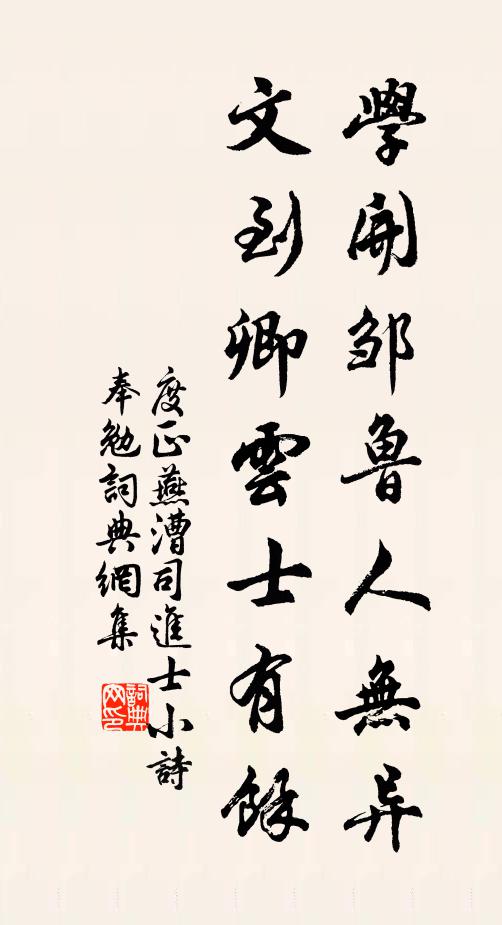 學開邹魯人無异
文到卿雲士有餘
度正燕漕司進士小詩
奉勉詞典網集
詞典网印